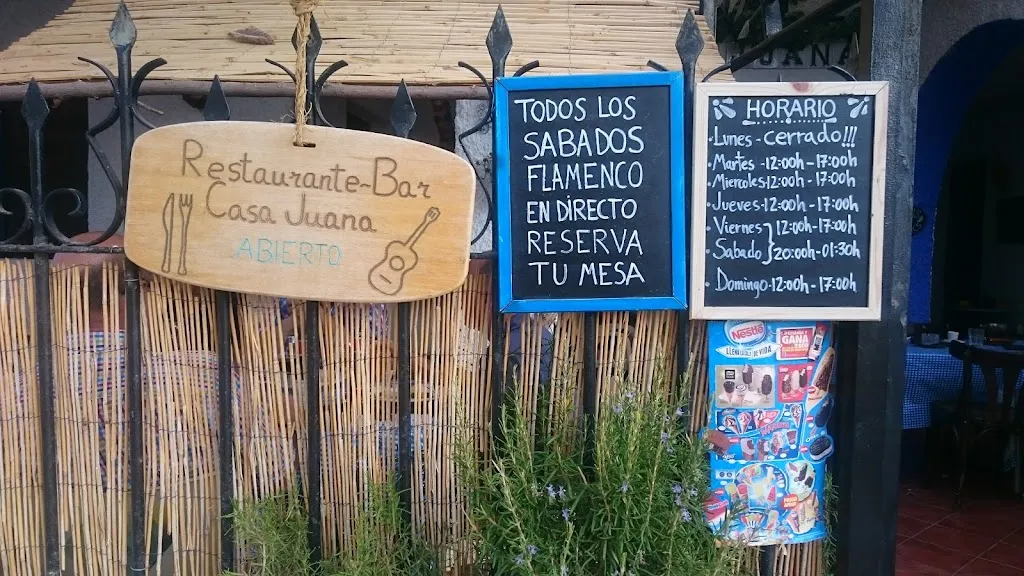 Restaurante-Bar
Casa Juana
ABIERTO
TODOS LOS
SABADOS
FLAMENCO
EN DIRECTO
RESERVA
TU MESA
HORARIO
• Lunes - cerrado!!!
• Martes - 12:00h - 17:00h
• Miercoles - 12:00h - 17:00h
• Jueves - 12:00h - 17:00h
• Viernes } 12:00h - 17:00h
• Sabado } 20:00h - 01:30h
• Domingo - 12:00h - 17:00h
Nestlé
GANA
UANA